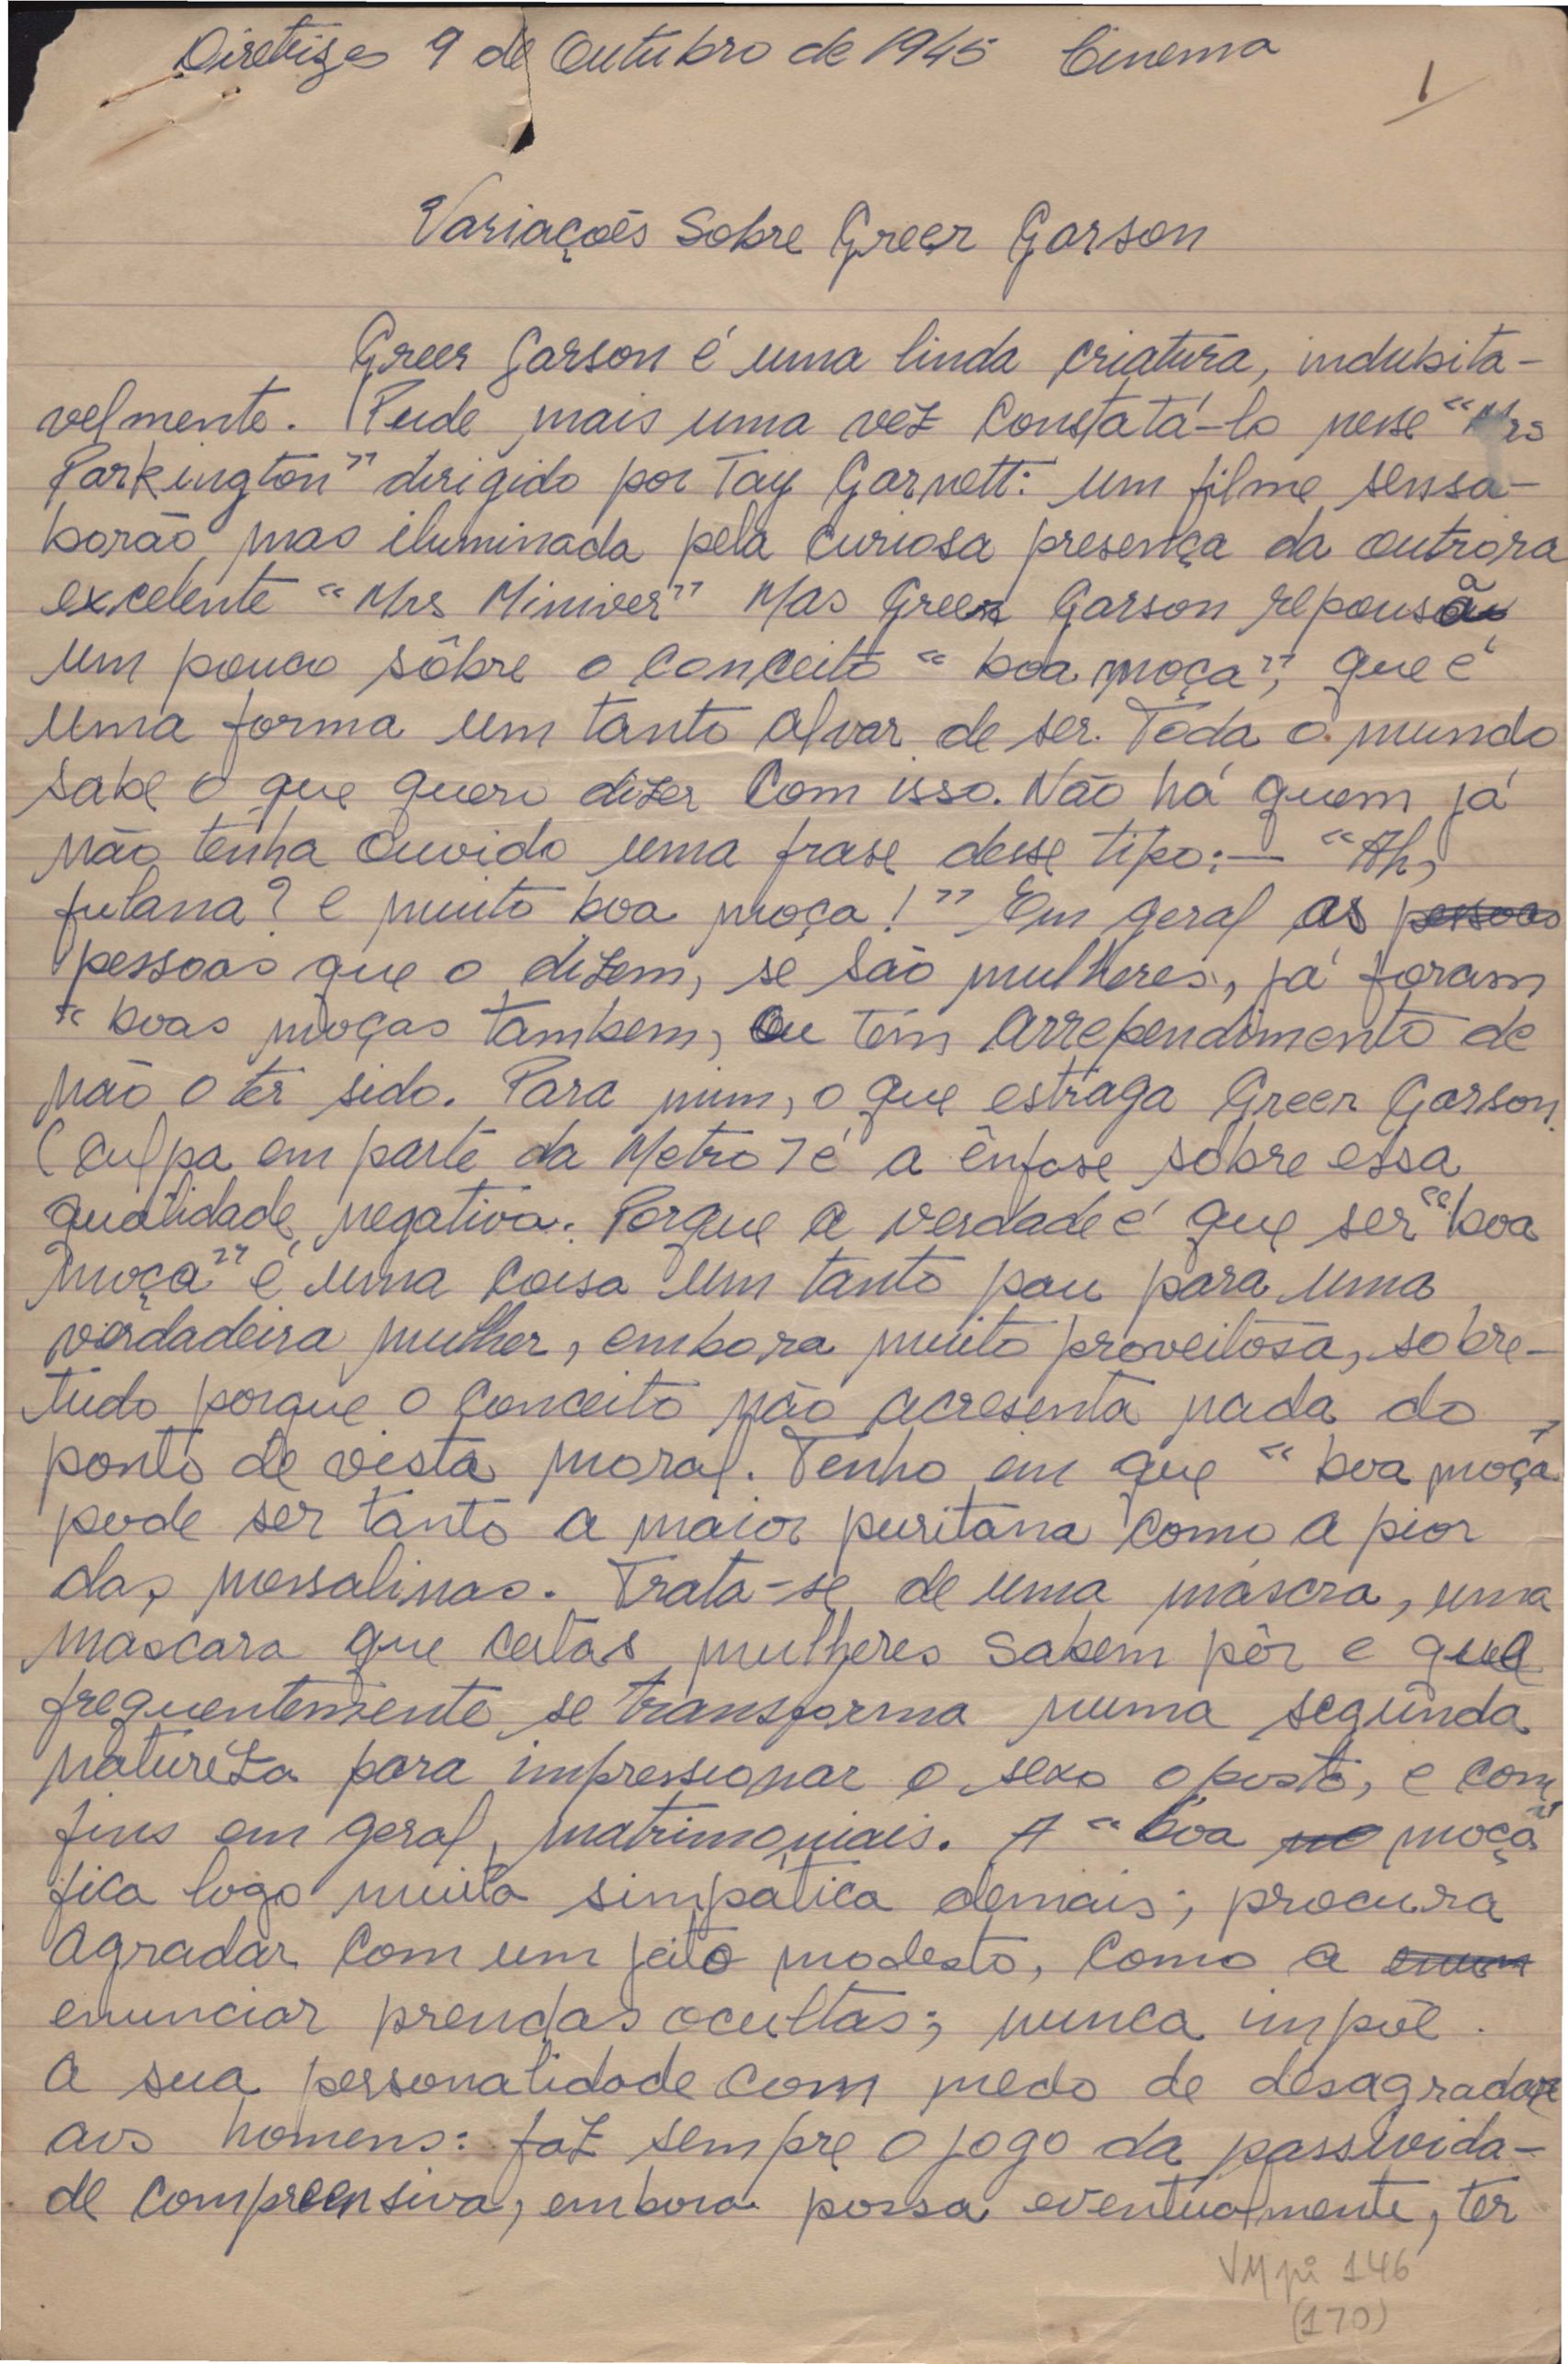 Diretrizes 9 de Outubro de 1945 Cinema
1
Variações Sobre Greer Garson
Greer Garson é uma linda criatura, indubita-
velmente. Pude mais uma vez constatá-lo nesse "Mrs
Parkington" dirigido por Tay Garnett: um filme sensa-
borão, mas iluminada pela curiosa presença da outrora
excelente "Mrs Miniver" Mas Greer Garson repousa
um pouco sôbre o conceito "boa moça", que é
uma forma um tanto alvar de ser. Toda o mundo
sabe o que quero dizer com isso. Não há quem já
não tenha ouvido uma frase desse tipo:— "Ah,
fulana? é muito boa moça!" Em geral as pessoas
pessoas que o dizem, se são mulheres, já foram
"boas moças tambem, ou têm arrependimento de
não o ter sido. Para mim, o que estraga Greer Garson
(culpa em parte da Metro) é a ênfase sôbre essa
qualidade negativa. Porque a verdade é que ser "boa
moça" é uma coisa um tanto pau para uma
verdadeira mulher, embora muito proveitosa, sobre-
tudo porque o conceito não acresenta nada do
ponto de vista moral. Tenho em que "boa moça"
pode ser tanto a maior puritana como a pior
das messalinas. Trata-se de uma máscra, uma
mascara que certas mulheres sabem pôr e que
frequentemente se transforma numa segunda
natureza para impressionar o sexo oposto, e com
fins em geral, matrimoniais. A "boa mo moça"
fica logo muito simpatica demais; procura
agradar com um jeito modesto, como a
enunciar prendas ocultas; nunca impõe
a sua personalidade com medo de desagradar
aos homens: faz sempre o jogo da passivida-
de compreensiva, embora possa eventualmente, ter
VM pi 146
(170)